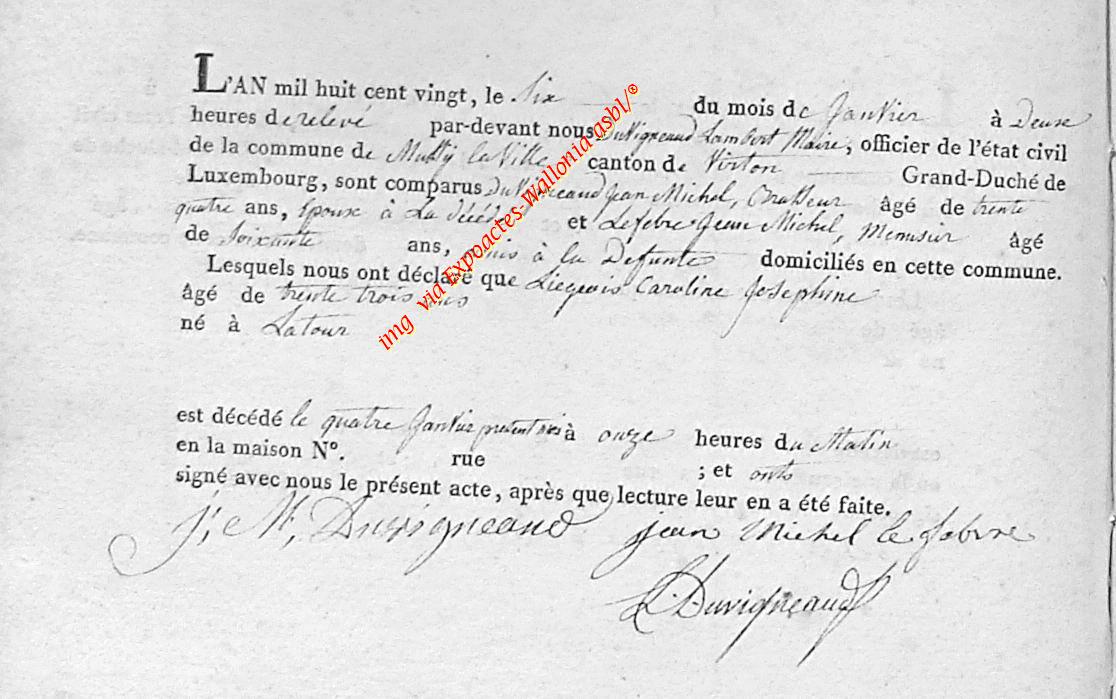 L'AN mil huit cent vingt, le Six du mois de Janvier à Deux
heures de relevé par-devant nous Duvigneaud Lambert Maire, officier de l'état civil
de la commune de Mussy la Ville canton de Virton Grand-Duché de
Luxembourg, sont comparus Duvigneaud Jean Michel, âgé de trente
quatre ans, Epoux à La décédée et Lefebre Jean Michel, Menusier âgé
de Soixante ans, amis à la Defunte domiciliés en cette commune.
Lesquels nous ont déclaré que Liegeois Caroline Josephine
âgé de trente trois ans
né à Latour
est décédé le quatre Janvier present mois à onze heures du Matin
en la maison N°. rue ; et onts
signé avec nous le présent acte, après que lecture leur en a été faite.
J, M, Duvigneaud jean Michel le febvre
L. Duvigneaud
img via Expoactes Wallonia asbl/®